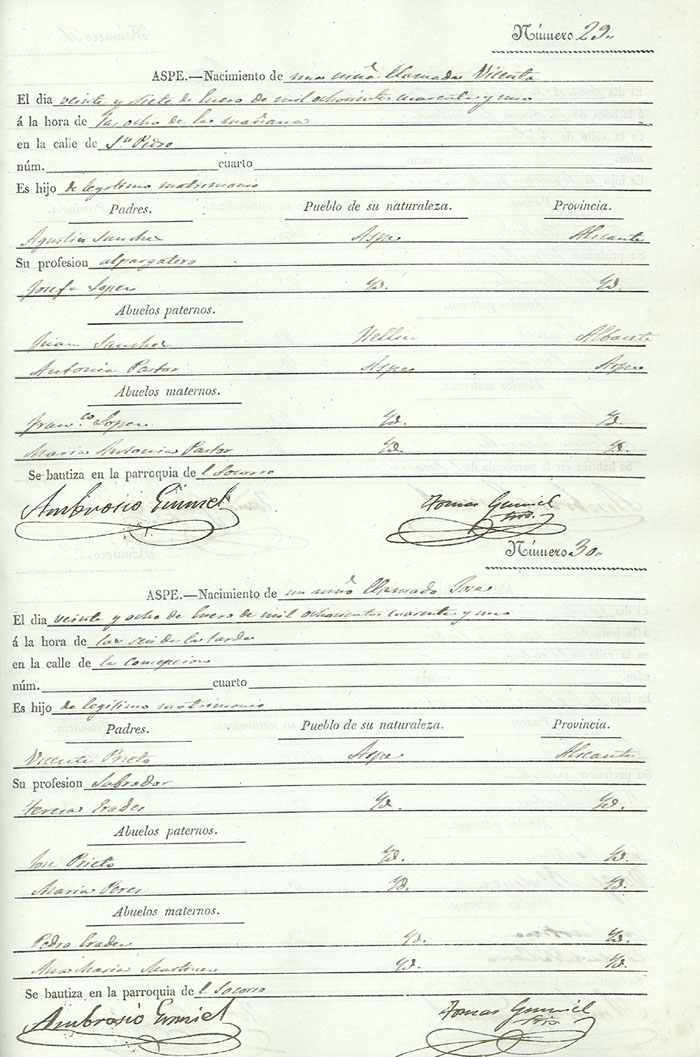 Número 29.
ASPE.—Nacimiento de una niña llamada Vicenta
El dia veinte y siete de Enero de mil ochocientos cuarenta y uno
á la hora de las ocho de la mañana
en la calle de Sn. Pedro
núm. cuarto
Es hijo de legitimo matrimonio
Padres. Pueblo de su naturaleza. Provincia.
Agustin Sanchez Aspe Alicante
Su profesion alpargatero
Josefa Lopez Yd. Yd.
Abuelos paternos.
Juan Sanchez Hellin Albacete
Antonia Pastor Aspe Aspe
Abuelos maternos.
Franco. Lopez Yd. Yd.
Maria Antonia Pastor Yd. Yd.
Se bautiza en la parroquia de l Socorro
Ambrosio
Tomas
Número 30.
ASPE.—Nacimiento de un niño llamado Jose
El dia veinte y ocho de Enero de mil ochocientos cuarenta y uno
á la hora de las seis de la tarde
en la calle de la Concepcion
núm. cuarto
Es hijo de legitimo matrimonio
Padres. Pueblo de su naturaleza. Provincia.
Vicente Prieto Aspe Alicante
Su profesion Labrador
Teresa Erades Yd. Yd.
Abuelos paternos.
Jose Prieto Yd. Yd.
Maria Perez Yd. Yd.
Abuelos maternos.
Pedro Erades Yd. Yd.
Ana Maria Martinez Yd. Yd.
Se bautiza en la parroquia de l Socorro
Ambrosio
Tomas